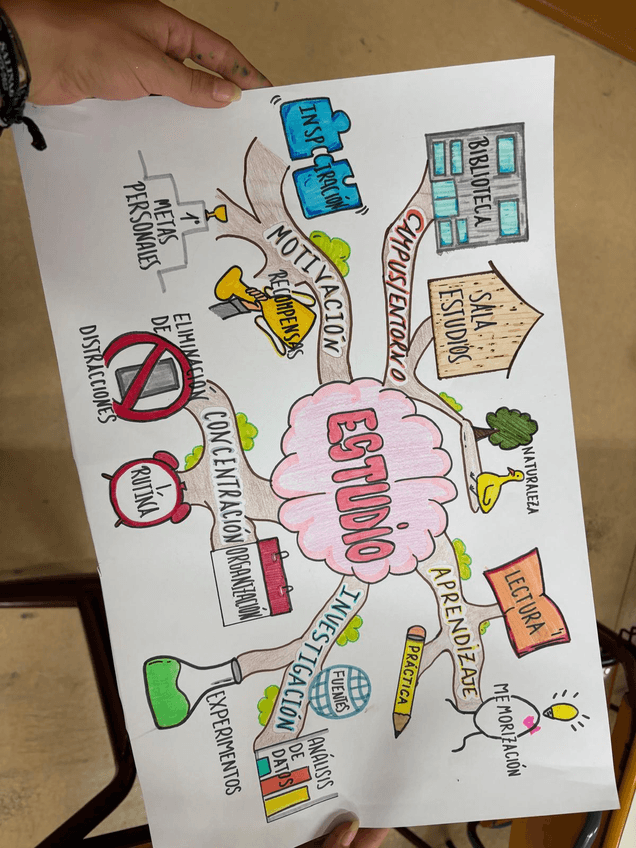 ESTUDIO
CAMPUS/ENTORNO
BIBLIOTECA
SALA
ESTUDIOS
NATURALEZA
APRENDIZAJE
LECTURA
PRÁCTICA
MEMORIZACIÓN
MOTIVACIÓN
INSPIRACIÓN
RECOMPENSAS
1°
METAS
PERSONALES
CONCENTRACIÓN
ELIMINACIÓN
DE
DISTRACCIONES
RUTINA
ORGANIZACIÓN
INVESTIGACIÓN
FUENTES
ANÁLISIS
DE
DATOS
EXPERIMENTOS